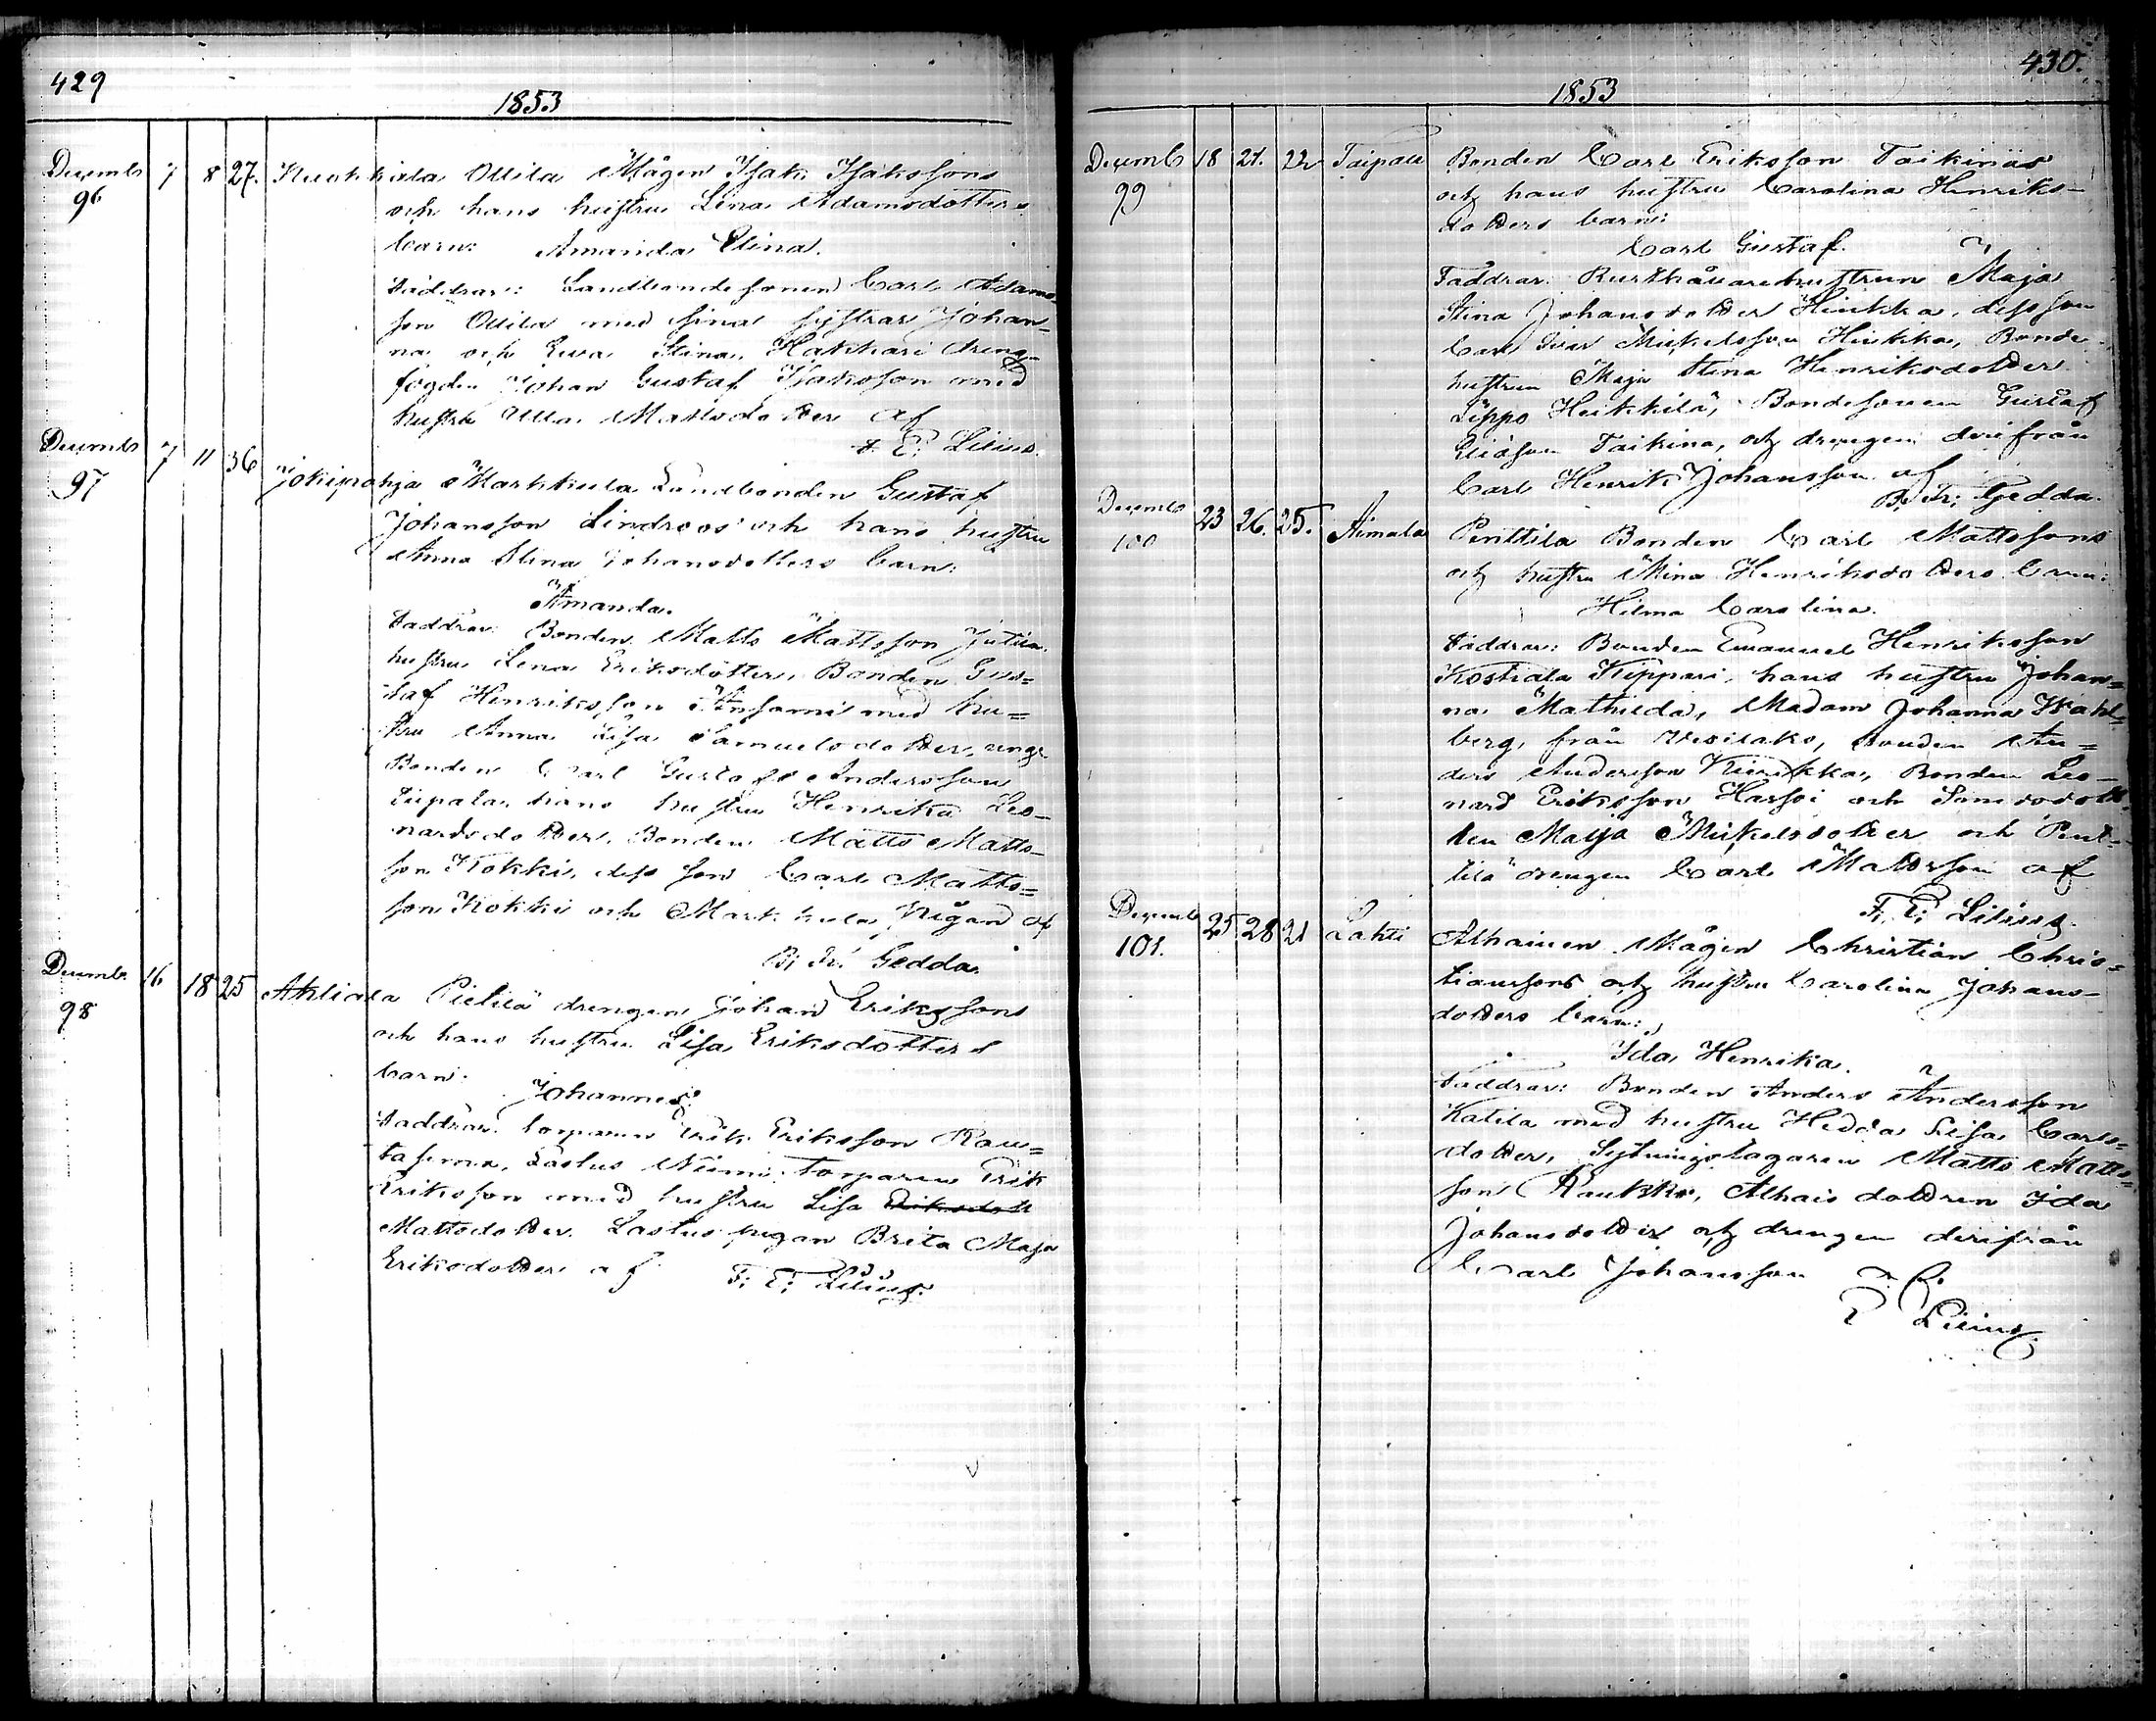 429
1853
Decemb 7 8 27. Kuokkala Ollila Mågen Isak Isakssons
96
och hans hustru Lina Adamsdotters
barn: Amanda Elina.
Faddrar: Landbondesonen Carl Adams
son Ollila med sina systrar Johan-
na och Eva Stina, Hakkari dreng-
fogden Johan Gustaf Isaksson med
hustru Ulla Mattsdotter af
F. E. Lilius.
Decemb 7 11 36 Jokipohja Markkula Landbonden Gustaf
97
Johansson Lindroos och hans hustru
Anna Stina Johansdotters barn:
Amanda.
Faddrar: Bonden Matts Mattsson Jutila
hustru Lena Eriksdotter, Bonden Gus=
taf Henriksson Ansomis med hu=
stru Anna Lisa Samuelsdotter, unge
Bonden Carl Gustafs Andersson
hans hustru Henrika Leo-
nardsdotter, Bonden Matts Matts-
son Kokki, dess son Carl Matts=
son Kokki och Markkula Pigan af
B. Fr. Gedda.
Decemb. 16 18 25 Ahliala Pietilä drengen Johan Erikssons
98
och hans hustru Lisa Eriksdotters
barn:
Johannes.
Faddrar: torparen Erik Eriksson Rau=
tasema, Lastus Niemi Torparen Erik
Eriksson med hustru Lisa Eriksdott
Mattsdotter, Lastus pigan Brita Maja
Eriksdotter af F. E. Lilius.
430.
1853
Decemb 18 21. 22 Taipale Bonden Carl Eriksson Taikinas
99
och hans hustru Carolina Henriks-
dotters barn:
Carl Gustaf.
Faddrar: Maja
Stina Johansdotter Heikka, dess son
Carl Ivar Mickelsson Heikka, Bonde
hustrun Maja Stina Henriksdotter
Seppä Heikkilä, Bondesonen Gustaf
Eliasson Taikina, och drengen derifrån
Carl Henrik Johansson af
B. Fr. Gedda.
Decemb 23 26. 25. Aimala Penttila Bonden Carl Mattssons
100
och hustru Mina Henriksdotters barn:
Hilma Carolina.
Faddrar: Bonden Emanuel Henriksson
Koskiala Kippari, hans hustru Johan=
na Mathilda, Madam Johanna Wahl=
berg, från Wesilaks, bonden An=
ders Andersson Bonden Leo-
nard Eriksson Harsoi och
ten Maija Mickelsdotter och Pent-
tilä drengen Carl Mattsson af
F. E. Lilius.
Decemb 25 28 21 Lahti Alhainen Mågen Christian Chris=
101.
tianssons och hustru Carolina Johans-
dotters barn:
Ida Henrika.
Faddrar: Bonden Anders Andersson
Katila med hustru Hedda Lisa Carls-
dotter, Sytningstagaren Matts Matts=
son Raukko, Alhais dottren Ida
Johansdotter och drengen derifrån
Carl Johansson af
E Lilius.